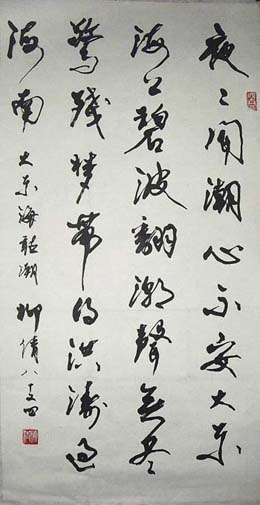 夜〻闻潮心不安大东
海上碧波翻潮聲无尽
驚残梦带得洪涛过
海南 大东海聽潮 柳倩八十又四